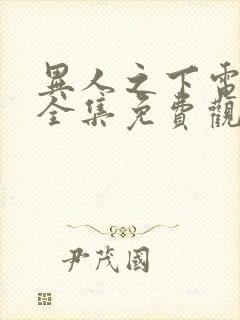 異人之下電
全集免費觀
尹茂國